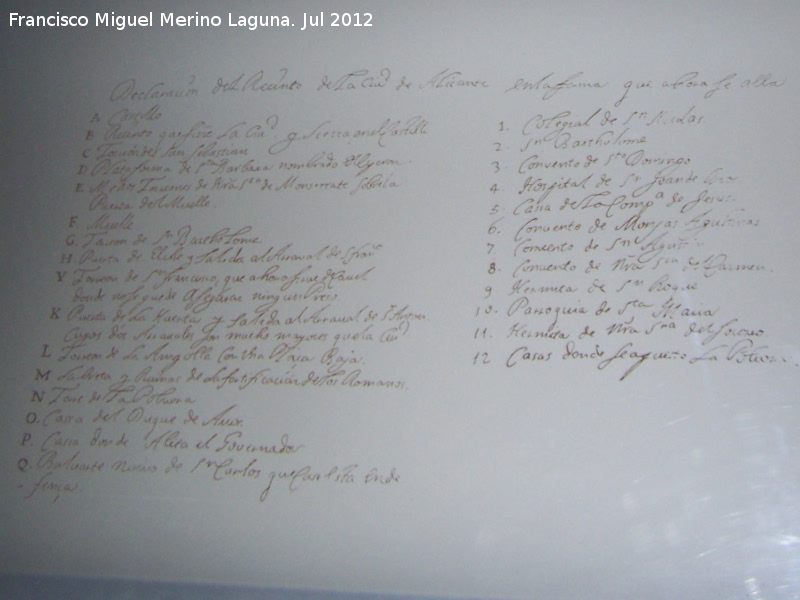 Francisco Miguel Merino Laguna. Jul 2012
Declaracion del Recinto de La Ciud de Alicante en la forma que ahora se alla
A Castillo
B Recinto que tiene La Ciud. y Sierra en el Castillo
C Torreon de San Sebastian
D Plataforma de Sta Barbara nombrado el
E Medios Torreones de Nra Sra de Monserrate sobre la
Puerta del Muelle
F Muelle
G. Torreon de Sn Bartholome
H Puerta de Elche y salida al Arraval de Sn Franco
Y Torreon de Sn Francisco, que ahora sirve de Carcel
donde no se puede Asegurar ningun Preso
K Puerta de La Huerta y salida al Arraval de Sn Anton
Cuyos dos Arravales son mucho mayores que la Ciud.
L Torreon de La Ampolla con una Plaza Baja.
M La Breta y Ruinas de la fortificacion de los Romanos.
N Torre de La Polvora
O. Cassa del Duque de
P. Cassa donde Abita el Governador
Q. Baluarte Nuevo de Sn Carlos que Casi Esta en de
fensa.
1. Colegial de Sn Nicolas
2 Sn Bartholome
3. Convento de Sto Domingo
4. Hospital de Sn Joan de Dios
5. Cassa de La Compa de Jesus
6. Convento de Monjas Agustinas
7. Convento de Sn Agustin
8. Convento de Nra Sra del Carmen.
9 Hermita de Sn Roque
10. Parroquia de Sta Maria
11. Hermita de Nra Sra del Socorro
12 Casas donde se La Polvora.